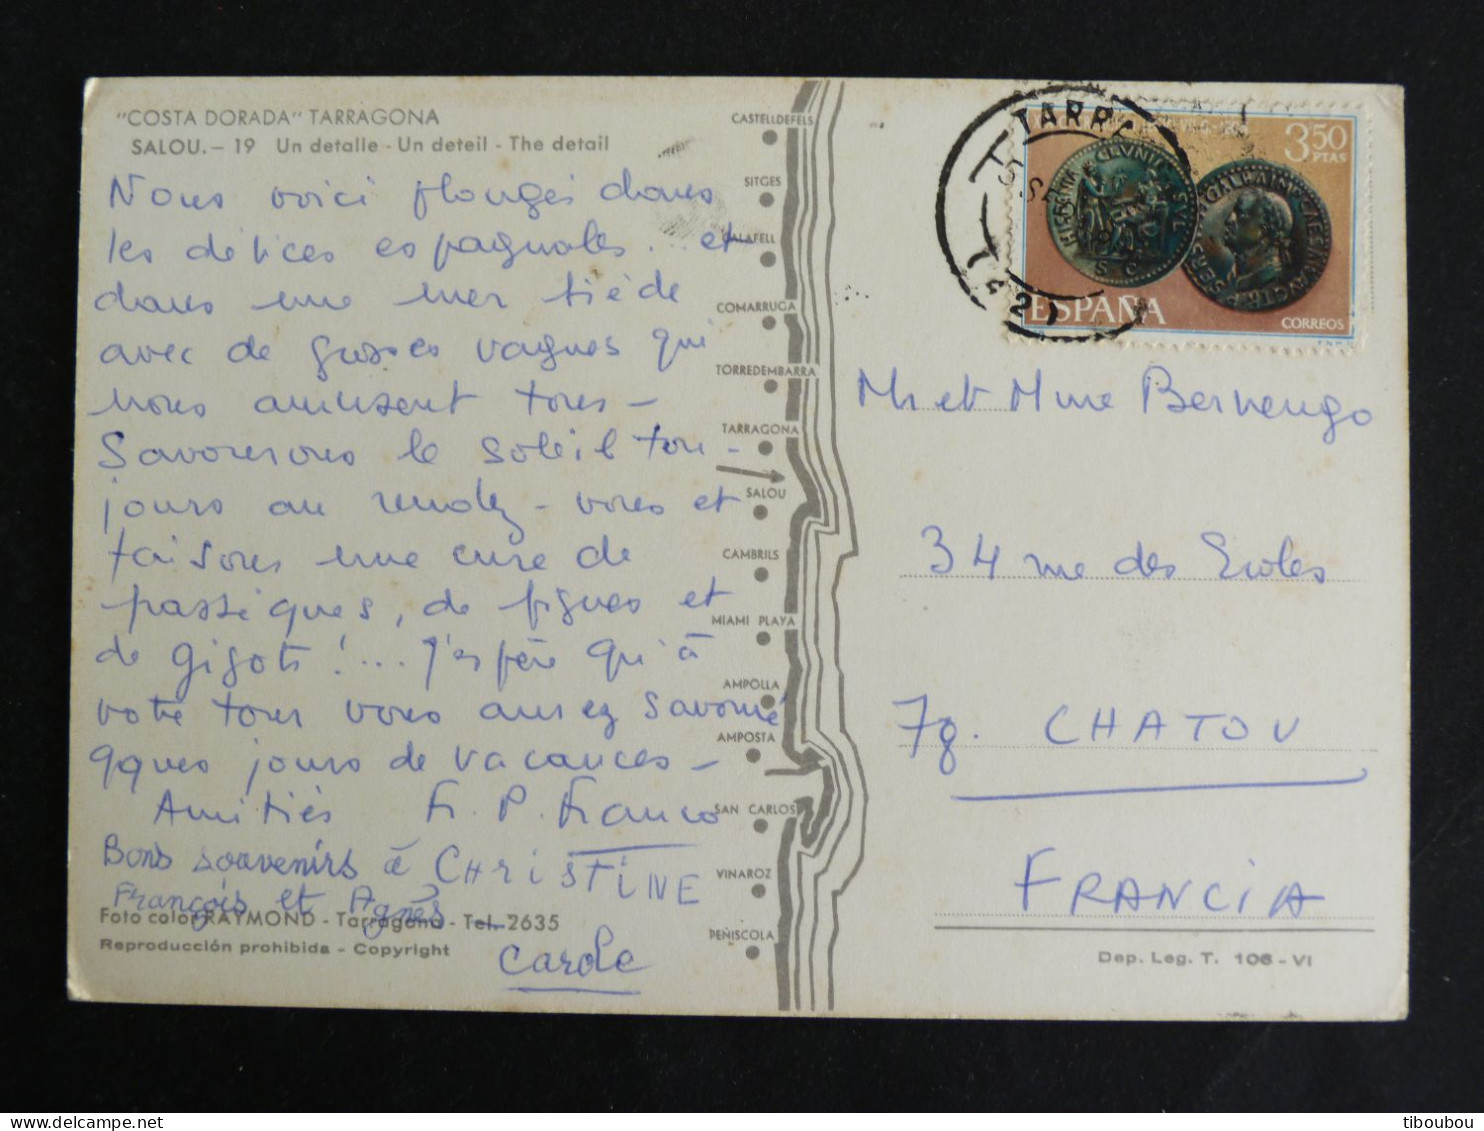 "COSTA DORADA" TARRAGONA
SALOU.- 19 Un detalle - Un deteil - The detail
Nous voici plongés dans
les délices espagnoles. et
dans une mer tiède
avec de grosses vagues qui
nous amusent tous -
Savourons le soleil tou-
jours au rendez-vous et
faisons une cure de
pastèques, de figues et
de gigots !... J'espère qu'à
votre tour vous aurez savouré
qques jours de vacances -
Amitiés F. P. Franco
Bons souvenirs à CHRISTINE
François et Agnès
Carole
Foto color RAYMOND - Tarragona - Tel. 2635
Reproducción prohibida - Copyright
CASTELLDEFELS
SITGES
CALAFELL
COMARRUGA
TORREDEMBARRA
TARRAGONA
SALOU
CAMBRILS
MIAMI PLAYA
AMPOLLA
AMPOSTA
SAN CARLOS
VINAROZ
PEÑISCOLA
TARRA
3,50
PTAS
HISPANIA CLVNIA SVL
S. C.
SER GALBA IMP CAESAR AVG TR P
ESPAÑA
CORREOS
Mr et Mme Bernengo
34 rue des Ecoles
78. CHATOU
FRANCIA
Dep. Leg. T. 106 - VI
tiboubou